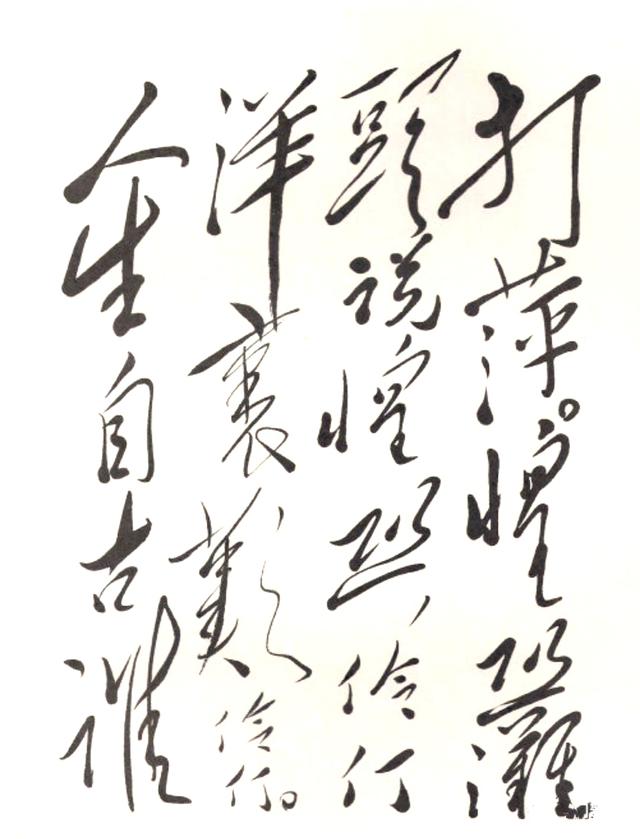 打萍。惶恐灘
頭說惶恐伶仃
洋裏歎伶仃。
人生自古誰